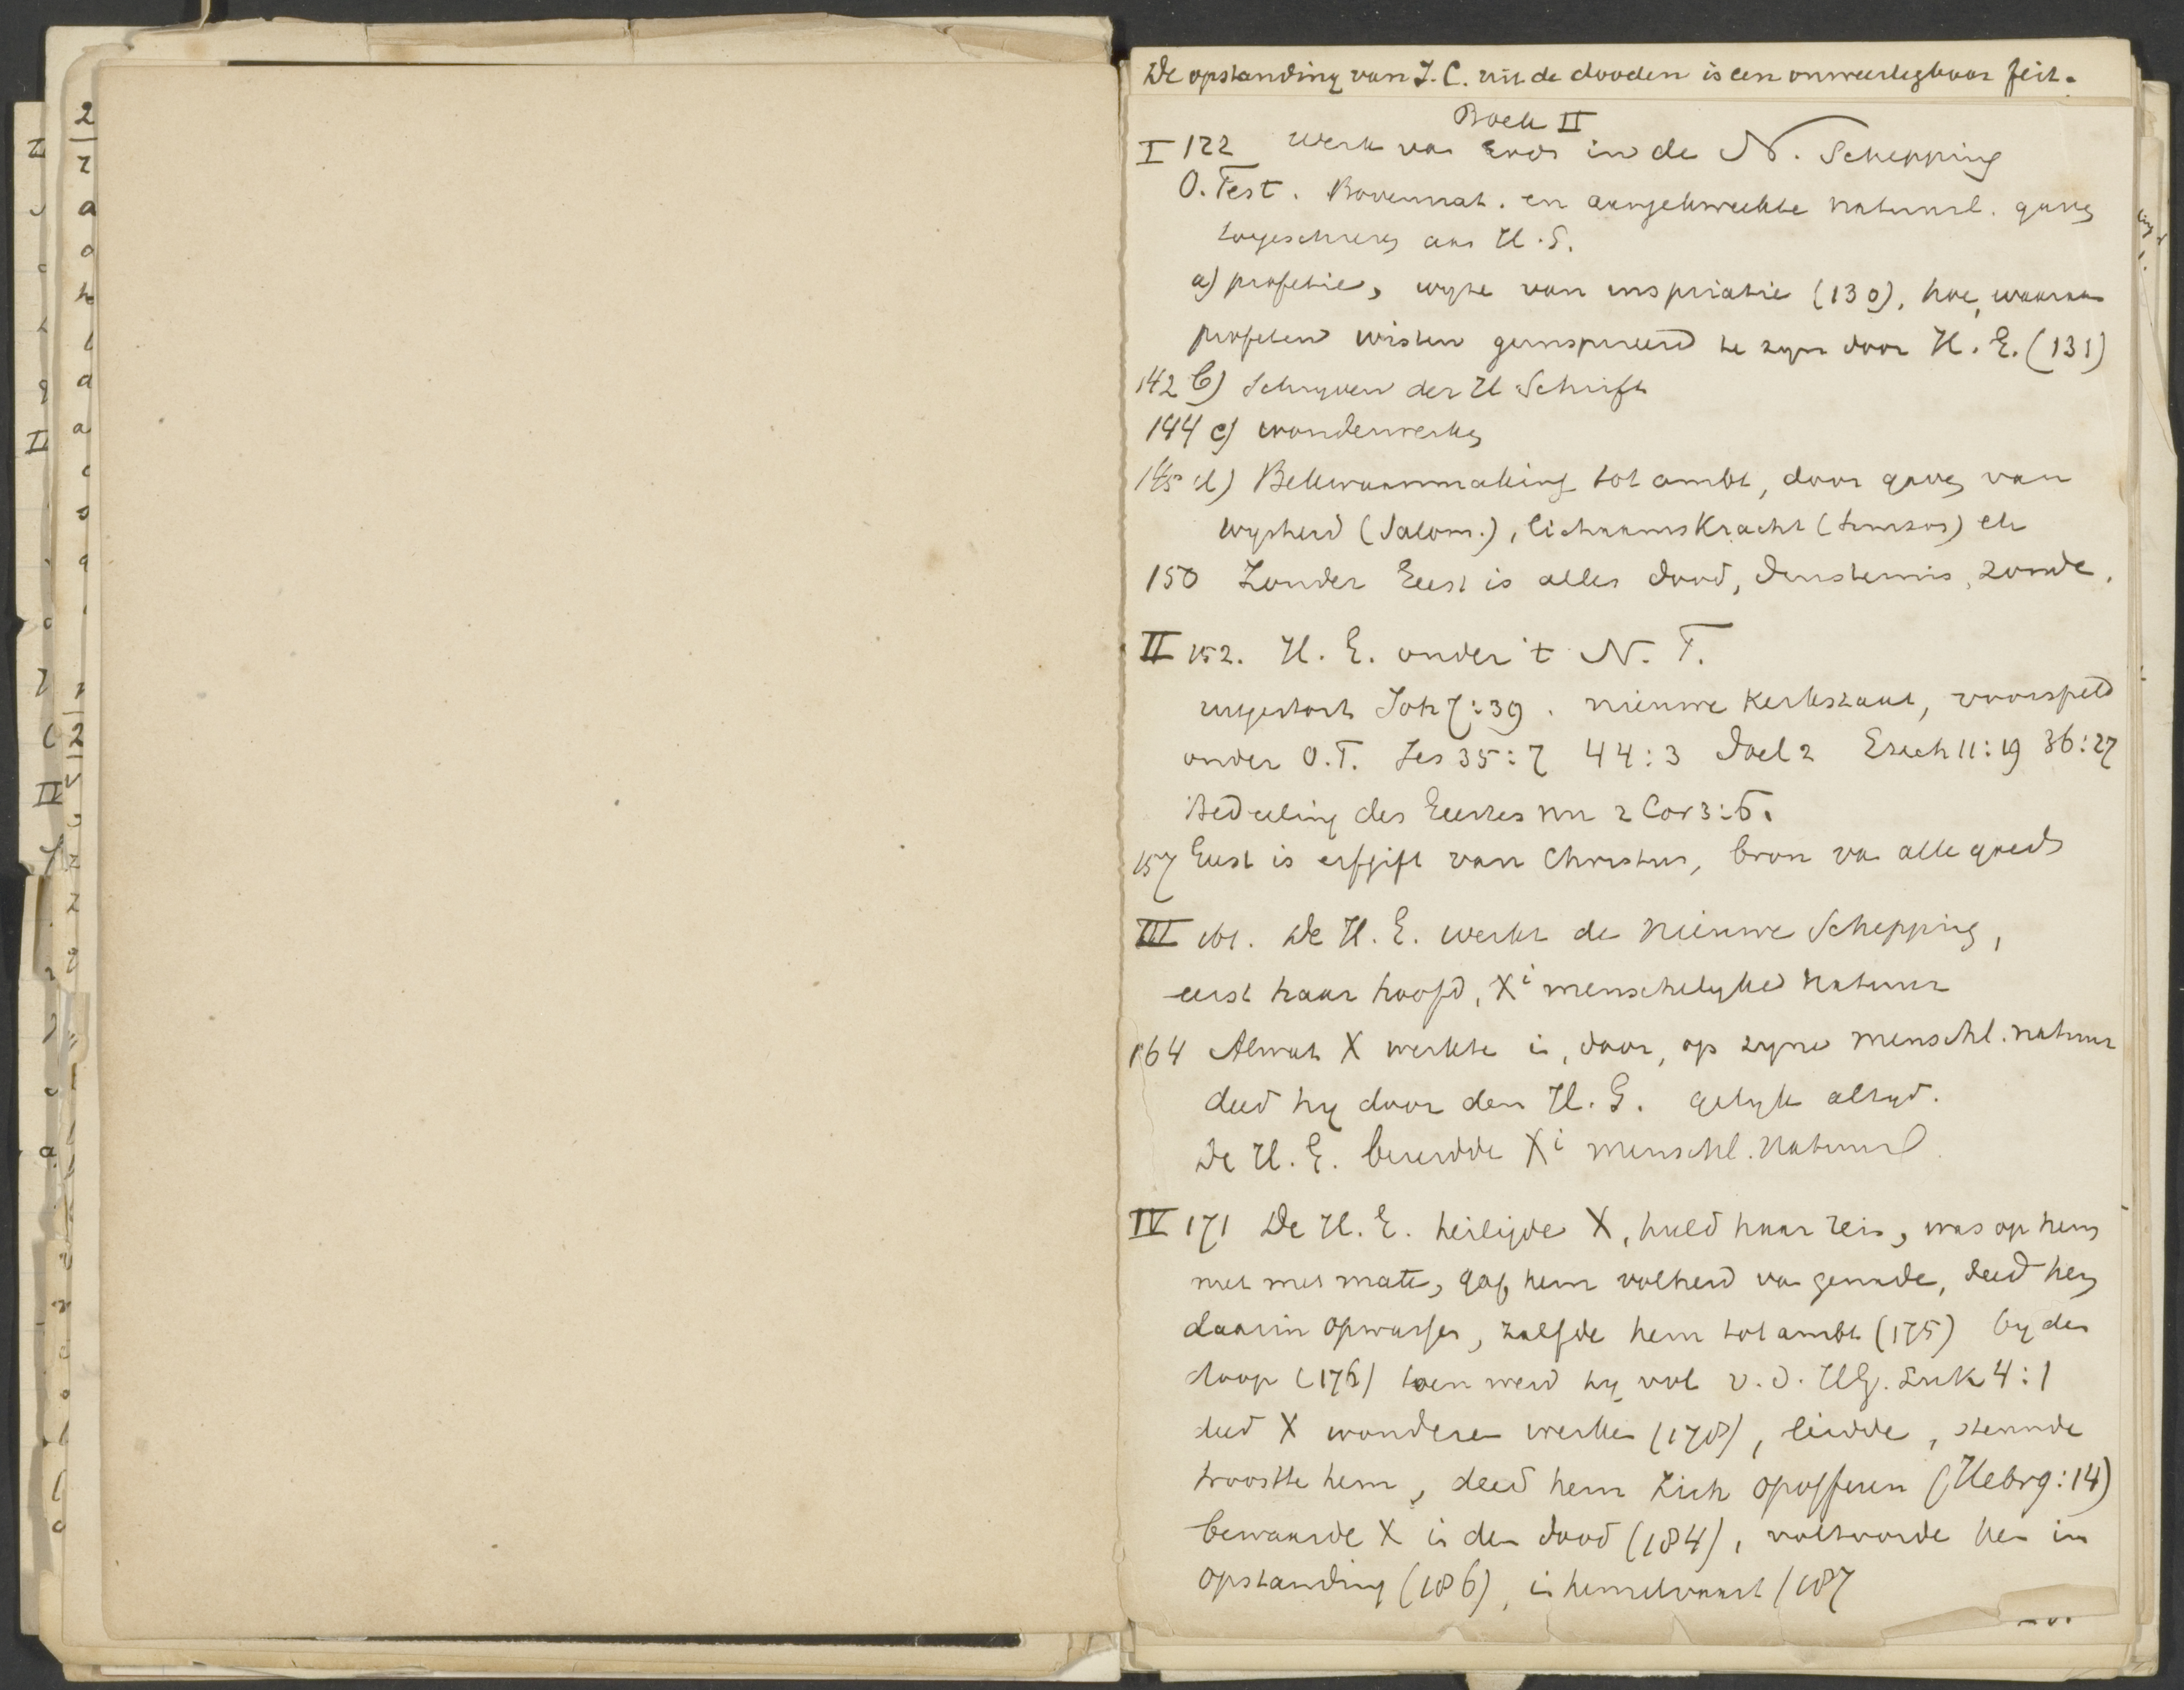 De opstanding van J. C. uit de dooden is een onweerlegbaar feit.
Boek II
I 122 Werk van Gods in de N. Schepping
O. Test. Bovennat. en aangekweekte natuurl. gaven
toegeschreven aan H. G.
a) profetie, wyze van inspriatie (130), hoe, waaraan
profeten wisten geinspireerd te zyn door H. G. (131)
142 b) Schryven der H Schrift
144 c) wonderwerken
145 d) Bekwaammaking tot ambt, door gaven van
wysheid (Salom.), lichaamskracht (Simson) etc
150 Zonder Geest is alles dood, duisternis, zonde.
II 152. H. G. onder 't N. T.
uitgestort Joh 7:39. nieuwe kerkstaat, voorspeld
onder O. T. Jes 35:7 44:3 Joel 2 Ezech 11:19 36:27
Bedeeling des Geestes nu 2 Cor 3:6.
157 Geest is erfgift van Christus, bron van alle goeds
III 161. De H. G. werkt de nieuwe Schepping,
eerst haar hoofd, Xi menschelyke natuur
164 Alwat X werkte in, door, op zyne menschl. natuur
deed hy door den H. G. gelyk altyd.
De H. G. bereidde Xi menschl. natuur
IV 171 De H. G. heiligde X, hield haar rein, was op hem
niet met mate, gaf hem volheid van genade, deed hem
daarin opwassen, zalfde hem tot ambt (175) by den
doop (176) toen werd hy vol v. d. HG. Luk 4:1
deed X wonderen werken (178), leidde, steunde
troostte hem, deed hem zich opofferen (Hebr 9:14)
bewaarde X in den dood (184), voltooide hem in
opstanding (186), in hemelvaart (187